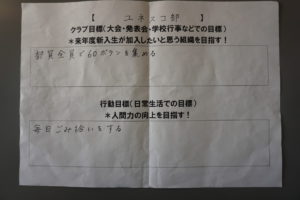 【 ユネスコ部 】
クラブ目標(大会・発表会・学校行事などでの目標)
＊来年度新入生が加入したいと思う組織を目指す！
部員全員で60ボタンを集める
行動目標(日常生活での目標)
＊人間力の向上を目指す！
毎日ごみ拾いをする